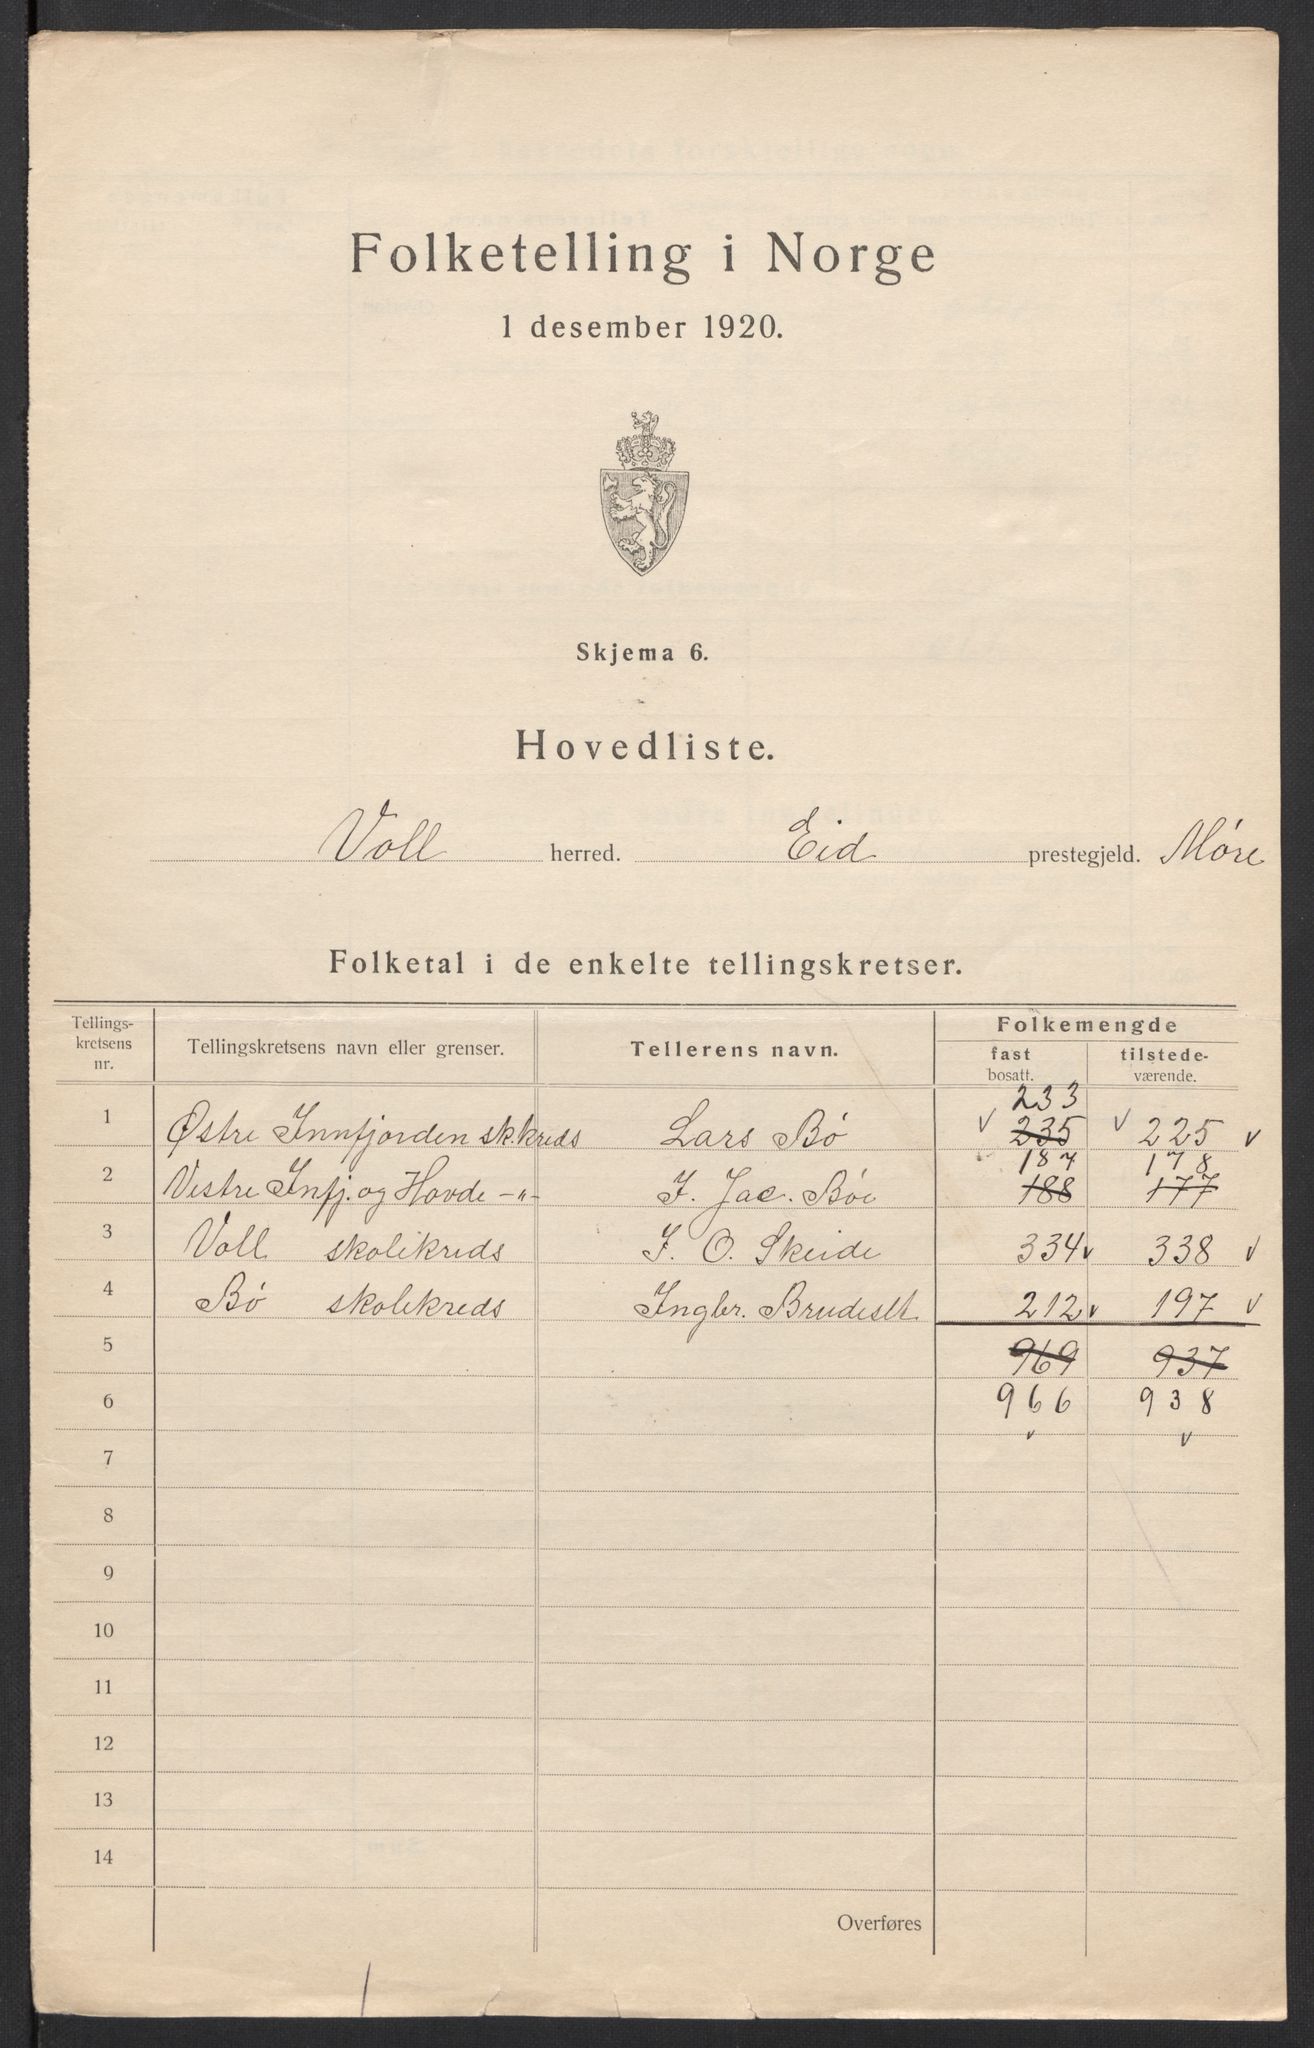 Folketelling i Norge
1 desember 1920.
Skjema 6.
Hovedliste.
Voll herred. Eid prestegjeld. Møre
Folketal i de enkelte tellingskretser.
Tellings-
kretsens
nr.
Tellingskretsens navn eller grenser.
Tellerens navn.
Folkemengde
fast
bosatt.
tilstede-
værende.
233
1 Østre Innfjorden sk.kreds Lars Bø √ 235 √ 225 √
187 178
2 Vestre Infj. og Hovde -"- J. Jac. Bøe 188 177
3 Voll skolekreds J. O. Skeide 334 √ 338 √
4 Bø skolekreds Ingbr. Brudeslt. 212 √ 197 √
5 969 937
6 966 938
√ √
7
8
9
10
11
12
13
14
Overføres